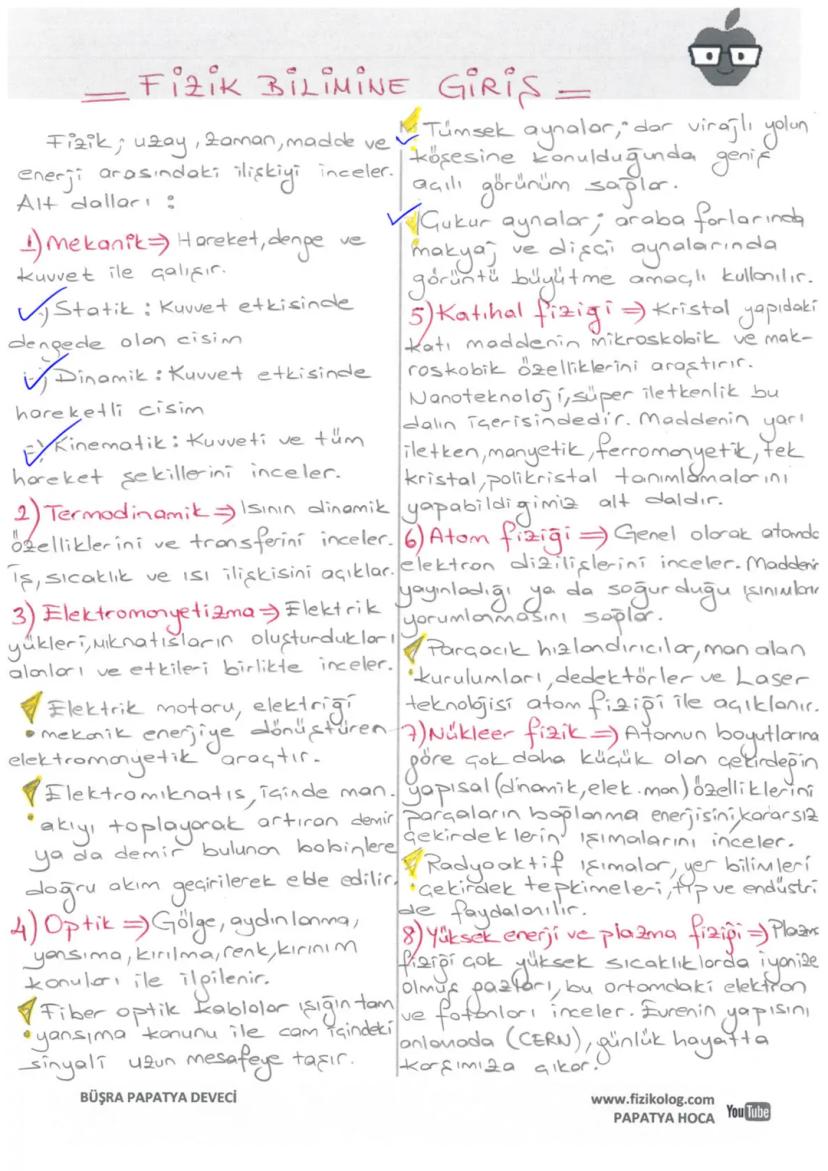 FİZİK BİLİMİNE GİRİŞ
Fizik; uzay, zaman, madde ve
enerji arasındaki ilişkiyi inceler.
Alt dalları :
1) Mekanik ⇒ Hareket, denge ve
kuvvet ile çalışır.
-) Statik : Kuvvet etkisinde
dengede olan cisim
-) Dinamik : Kuvvet etkisinde
hareketli cisim
-) Kinematik : Kuvveti ve tüm
hareket şekillerini inceler.
2) Termodinamik ⇒ Isının dinamik
özelliklerini ve transferini inceler.
İş, sıcaklık ve ısı ilişkisini açıklar.
3) Elektromanyetizma ⇒ Elektrik
yükleri, mıknatısların oluşturdukları
alanları ve etkileri birlikte inceler.
Elektrik motoru, elektriği
mekanik enerjiye dönüştüren
elektromanyetik araçtır.
Elektromıknatıs, içinde man.
akıyı toplayarak artıran demir
ya da demir bulunan bobinlere
doğru akım geçirilerek elde edilir.
4) Optik ⇒ Gölge, aydınlanma,
yansıma, kırılma, renk, kırınım
konuları ile ilgilenir.
Fiber optik kablolar ışığın tam
yansıma kanunu ile cam içindeki
sinyali uzun mesafeye taşır.
Tümsek aynalar; dar virajlı yolun
köşesine konulduğunda geniş
açılı görünüm sağlar.
Çukur aynalar; araba farlarında
makyaj ve dişçi aynalarında
görüntü büyütme amaçlı kullanılır.
5) Katıhal fiziği ⇒ Kristal yapıdaki
katı maddenin mikroskobik ve mak-
roskobik özelliklerini araştırır.
Nanoteknoloji, süper iletkenlik bu
dalın içerisindedir. Maddenin yarı
iletken, manyetik, ferromanyetik, tek
kristal, polikristal tanımlamalarını
yapabildiğimiz alt daldır.
6) Atom fiziği ⇒ Genel olarak atomda
elektron dizilişlerini inceler. Maddenin
yayınladığı ya da soğurduğu ışınımların
yorumlanmasını sağlar.
Parçacık hızlandırıcılar, man alan
kurulumları, dedektörler ve Laser
teknolojisi atom fiziği ile açıklanır.
7) Nükleer fizik ⇒ Atomun boyutlarına
göre çok daha küçük olan çekirdeğin
yapısal (dinamik, elek. man) özelliklerini
parçaların bağlanma enerjisini, kararsız
çekirdeklerin ışımalarını inceler.
Radyoaktif ışımalar, yer bilimleri
çekirdek tepkimeleri, tıp ve endüstri
de faydalanılır.
8) Yüksek enerji ve plazma fiziği ⇒ Plazma
fiziği çok yüksek sıcaklıklarda iyonize
olmuş gazları, bu ortamdaki elektron
ve fotonları inceler. Evrenin yapısını
anlamada (CERN), günlük hayatta
karşımıza çıkar.
BÜŞRA PAPATYA DEVECİ
www.fizikolog.com
PAPATYA HOCA
YouTube